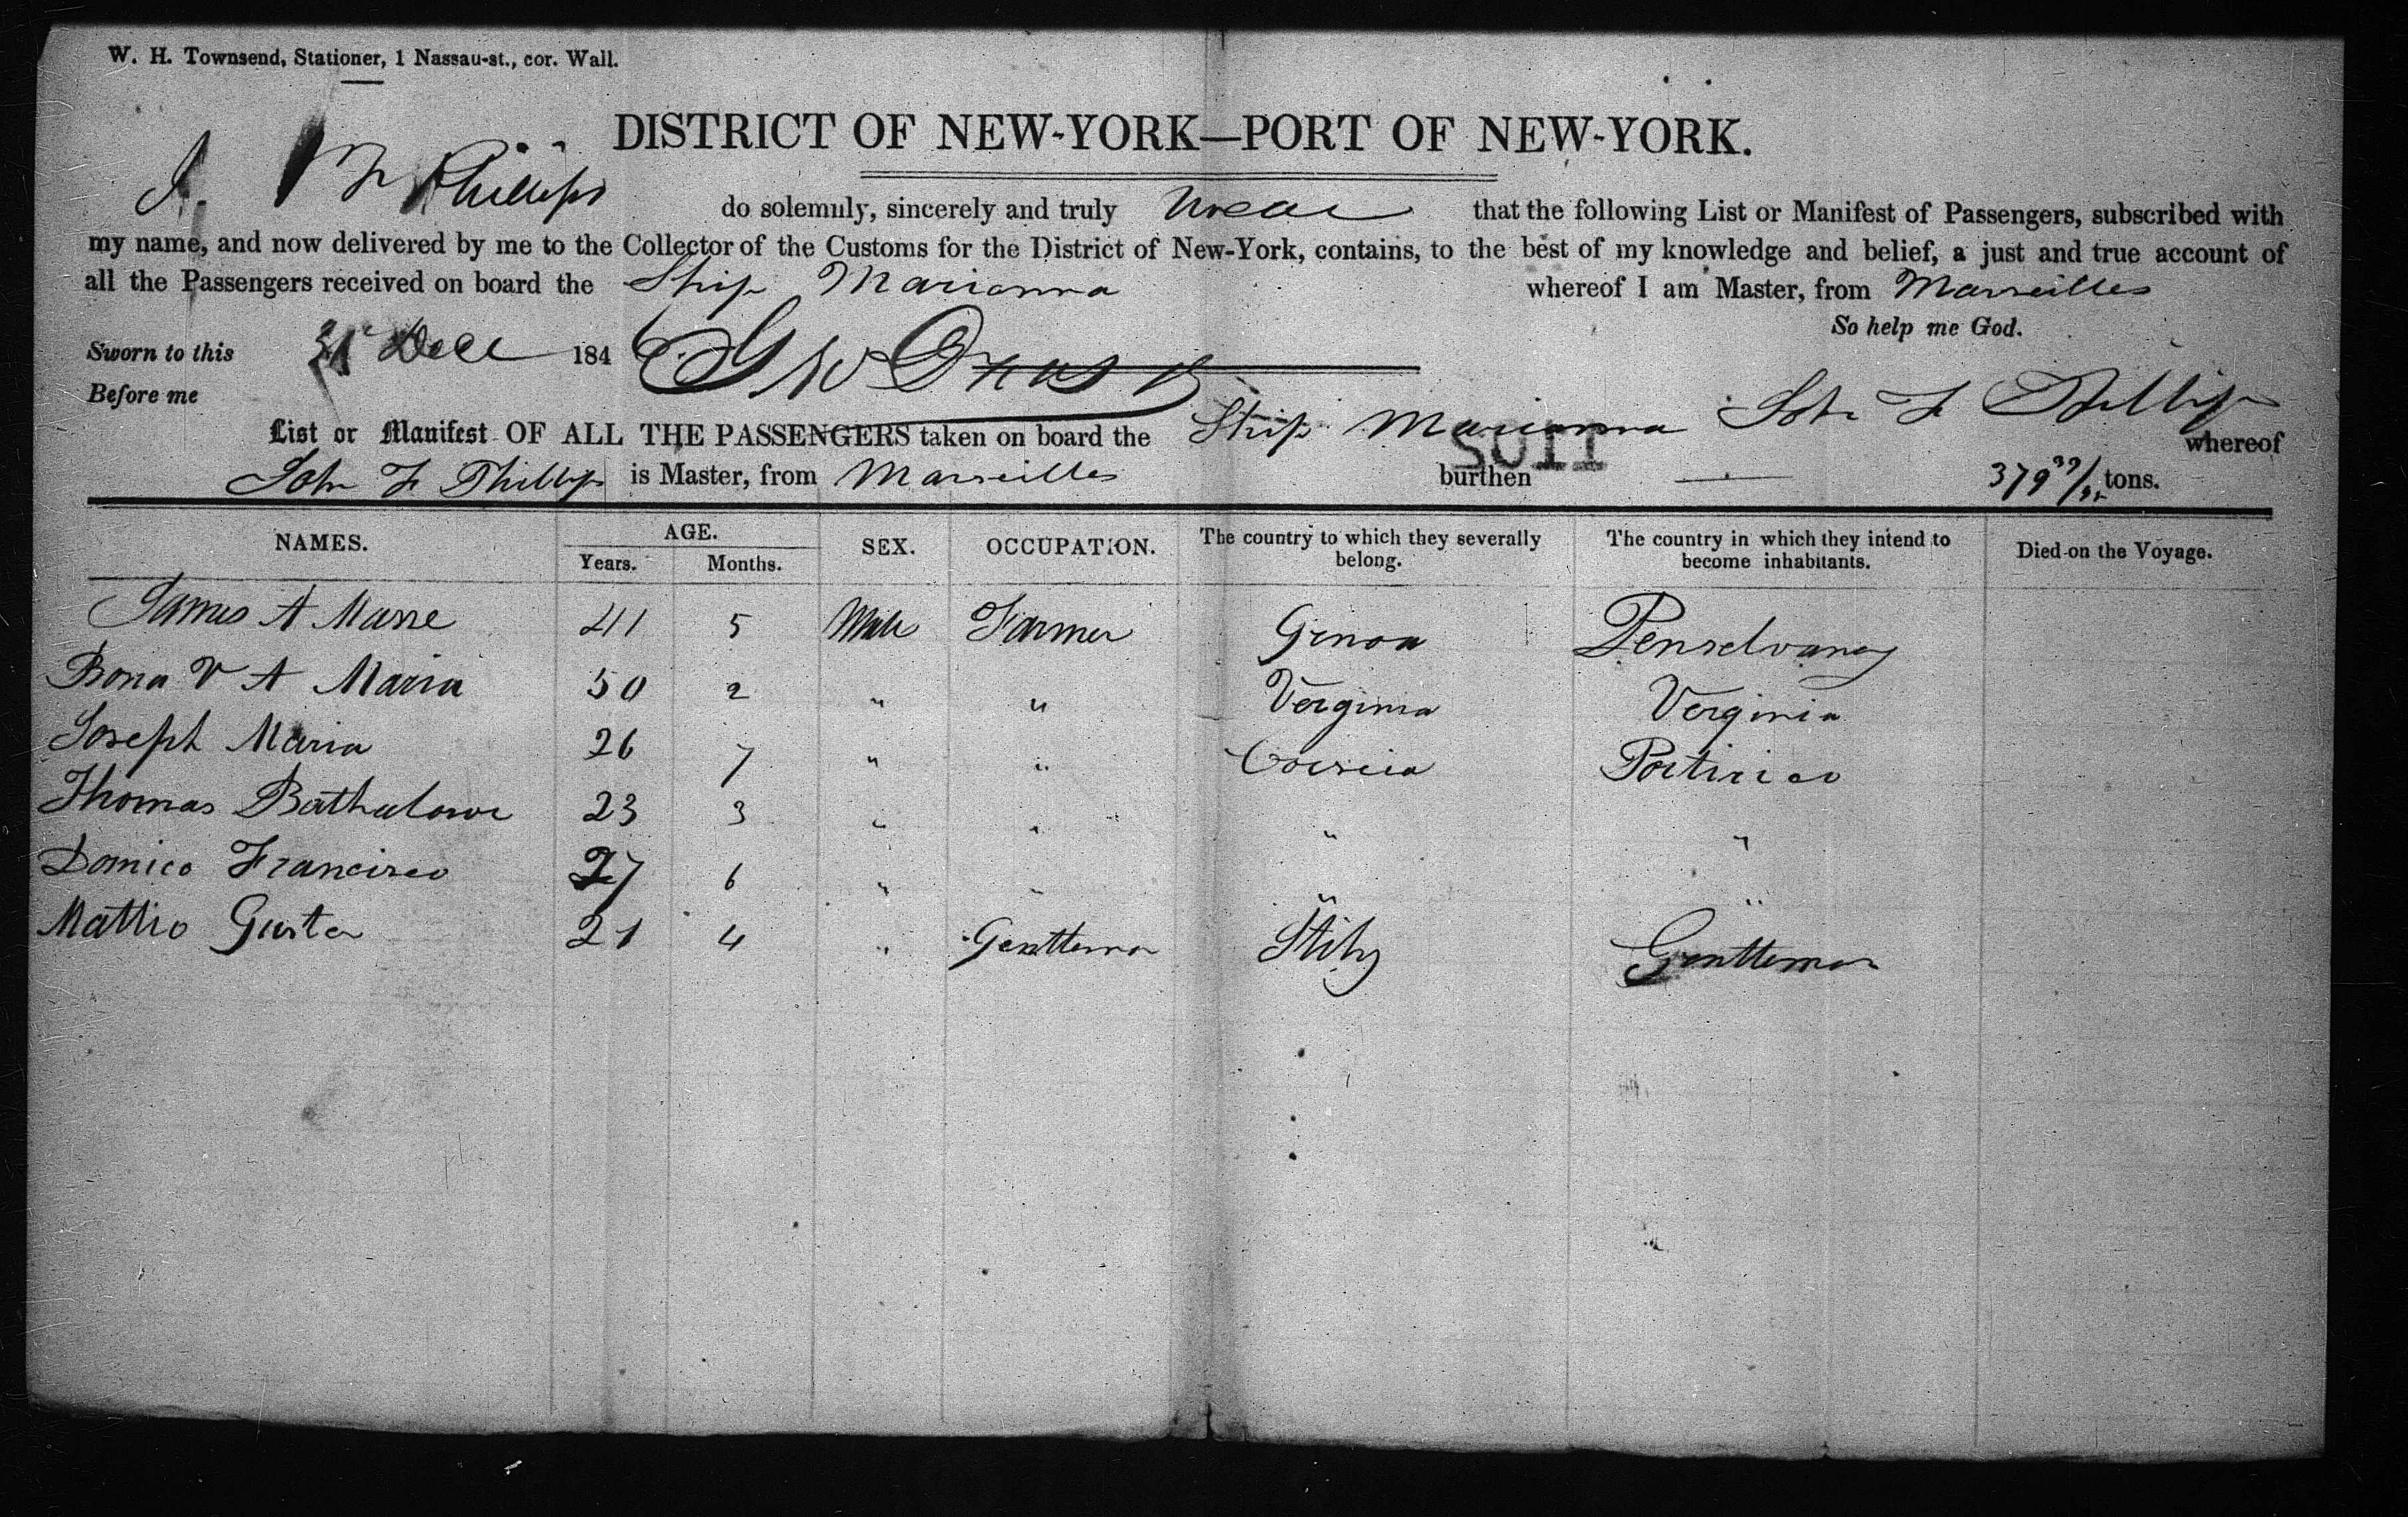 W. H. Townsend, Stationer, 1 Nassau-st., cor. Wall.
DISTRICT OF NEW-YORK—PORT OF NEW-YORK.
I. Phillips do solemnly, sincerely and truly swear that the following List or Manifest of Passengers, subscribed with
my name, and now delivered by me to the Collector of the Customs for the District of New-York, contains, to the best of my knowledge and belief, a just and true account of
all the Passengers received on board the Ship Marianna whereof I am Master, from Marseilles
So help me God.
Sworn to this 31 Dec 184
Before me
John F Phillips
List or Manifest OF ALL THE PASSENGERS taken on board the Ship Marianna whereof
John F Phillips is Master, from Marseilles burthen 379 39/95 tons.
NAMES. AGE. SEX. OCCUPATION. The country to which they severally belong. The country in which they intend to become inhabitants. Died on the Voyage.
Years. Months.
James A Masse 41 5 Male Farmer Genoa Penselvaney
Bona V A Maria 50 2 " " Verginia Verginia
Joseph Maria 26 7 " " Corsica Portirico
Thomas Bathalowe 23 3 " " " "
Domico Francisco 27 6 " " " "
Mattio Gusta 21 4 " Gentleman Itily Gentleman